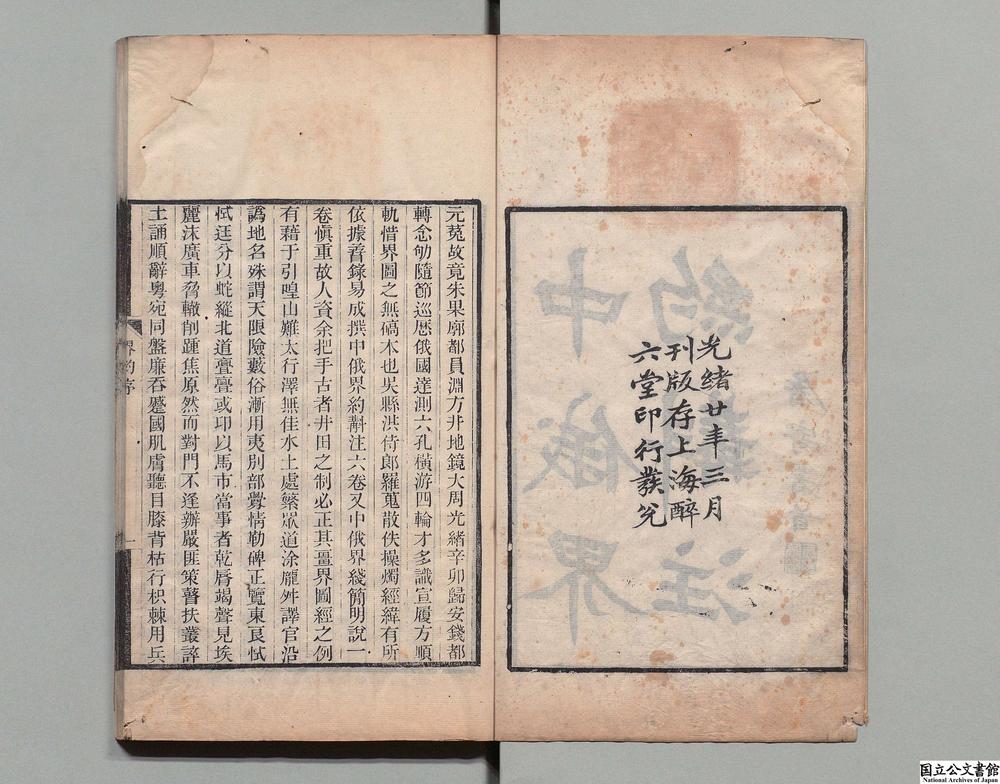 光緒廿年三月
刊版存上海醉
六堂印行發兌
中俄界
約斠注
元菟故竟朱果廓都員淵方井地鏡大周光緒辛卯歸安錢都
轉念劬隨節巡歷俄國達測六孔橫游四輪才多識宣履方順
軌惜界圖之無碻本也吳縣洪侍郎羅蒐散佚操燭經緯有所
依據著錄易成撰中俄界約斠注六卷又中俄界綫簡明說一
卷慎重故人資余把手古者井田之制必正其畺界圖經之例
有藉于引喤山難太行澤無佳水土處繁眾道涂龐舛譯官沿
譌地名殊謂天限險藪俗漸用夷別部釁情勒碑正覽東良忒
忒迋分以蛇縱北道亹亹或卬以馬市當事者乾脣竭聲見埃
麗沫廣車脅轍削踵焦原然而對門不逢辦嚴匪策瞽扶叢誶
土誦順辭粵宛同盤廉吞蹙國肌膚聽目膝背枯行枳棘用兵
界約序
一
国立公文書館
National Archives of Japan